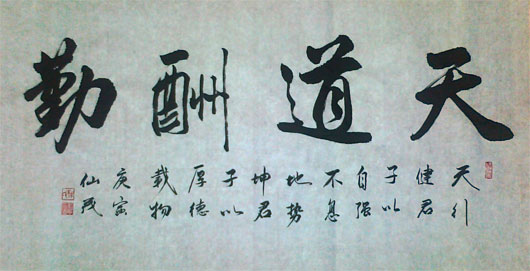 天道酬勤
天行
健君
子以
自强
不息
地势
坤君
子以
厚德
载物
庚寅
仙